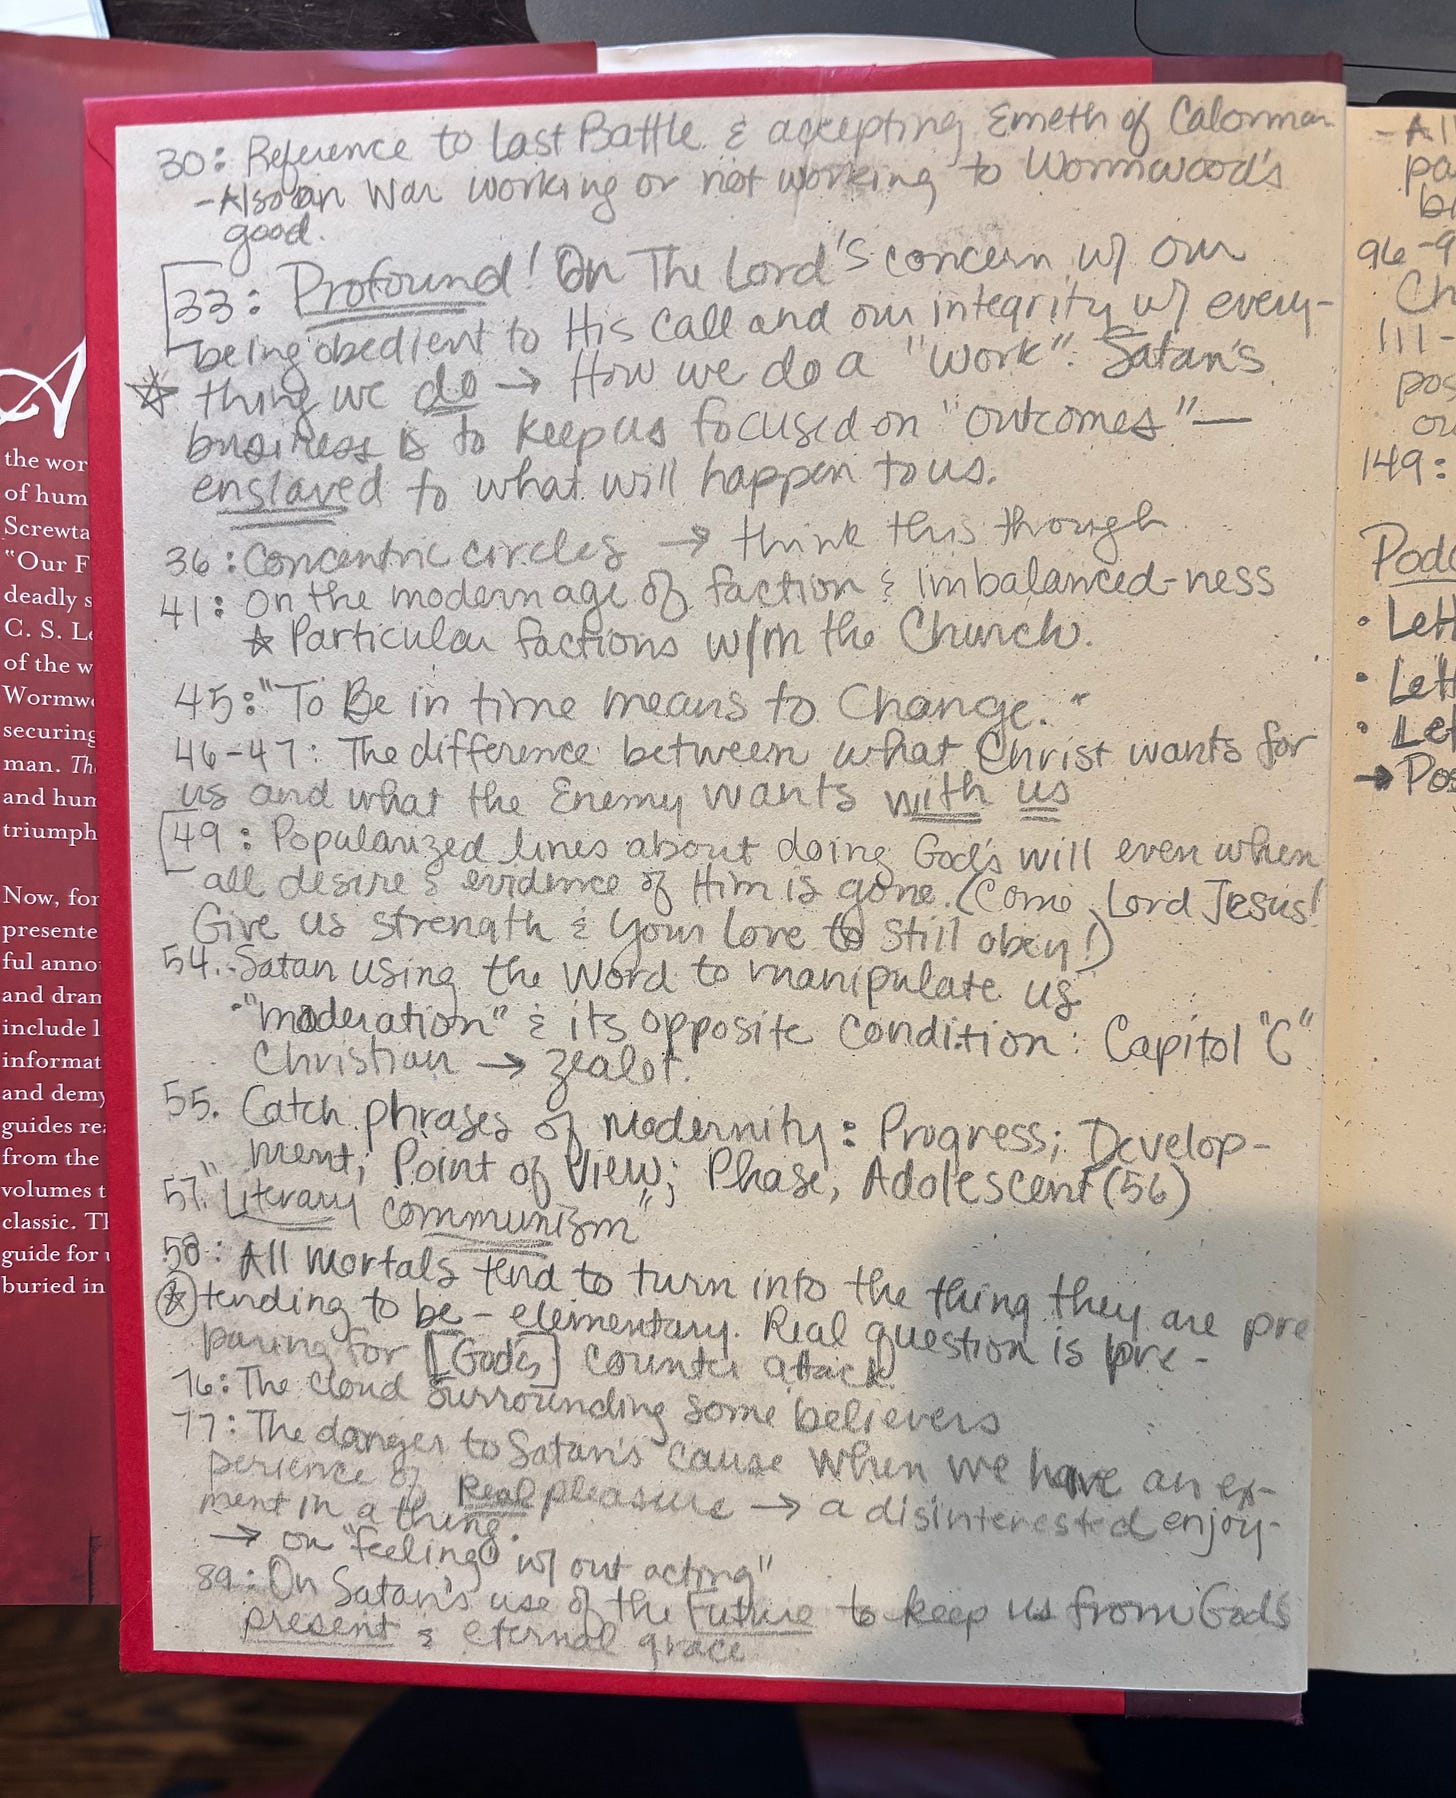 30: Reference to Last Battle & accepting Emeth of Calormen
- Also on War working or not working to Wormwood's
good.
33: Profound! On The Lord's concern w/ our
being obedient to His Call and our integrity w/ every-
thing we do → How we do a "work". Satan's
business is to keep us focused on "outcomes" —
enslaved to what will happen to us.
36: Concentric circles → think this through
41: On the modern age of faction & imbalanced-ness
☆ Particular factions w/in the Church.
45: "To Be in time means to Change."
46-47: The difference between what Christ wants for
us and what the Enemy wants with us
49: Popularized lines about doing God's will even when
all desire & evidence of Him is gone. (Come Lord Jesus!
Give us strength & Your Love to Still obey!)
54. Satan using the Word to manipulate us
• "moderation" & its opposite condition: Capitol "C"
Christian → zealot.
55. Catch phrases of modernity: Progress; Develop-
ment; Point of View; Phase, Adolescent (56)
57. "Literary communism"
58: All mortals tend to turn into the thing they are pre
☆ tending to be - elementary. Real question is pre-
paring for [God's] counter attack
76: The cloud surrounding some believers
77: The danger to Satan's cause when we have an ex-
perience of Real pleasure → a disinterested enjoy-
ment in a thing.
→ on "feeling w/out acting"
89: On Satan's use of the Future to keep us from God's
present & eternal grace
A
the wor
of hum
Screwta
"Our F
deadly s
C. S. Le
of the w
Wormwo
securing
man. Th
and hum
triumph
Now, for
presente
ful anno
and dram
include l
informat
and demy
guides rea
from the
volumes t
classic. Th
guide for u
buried in
- All
pa
96-9
Ch
111-
pos
ou
149:
Podc
• Lett
• Lett
• Let
→ Pos